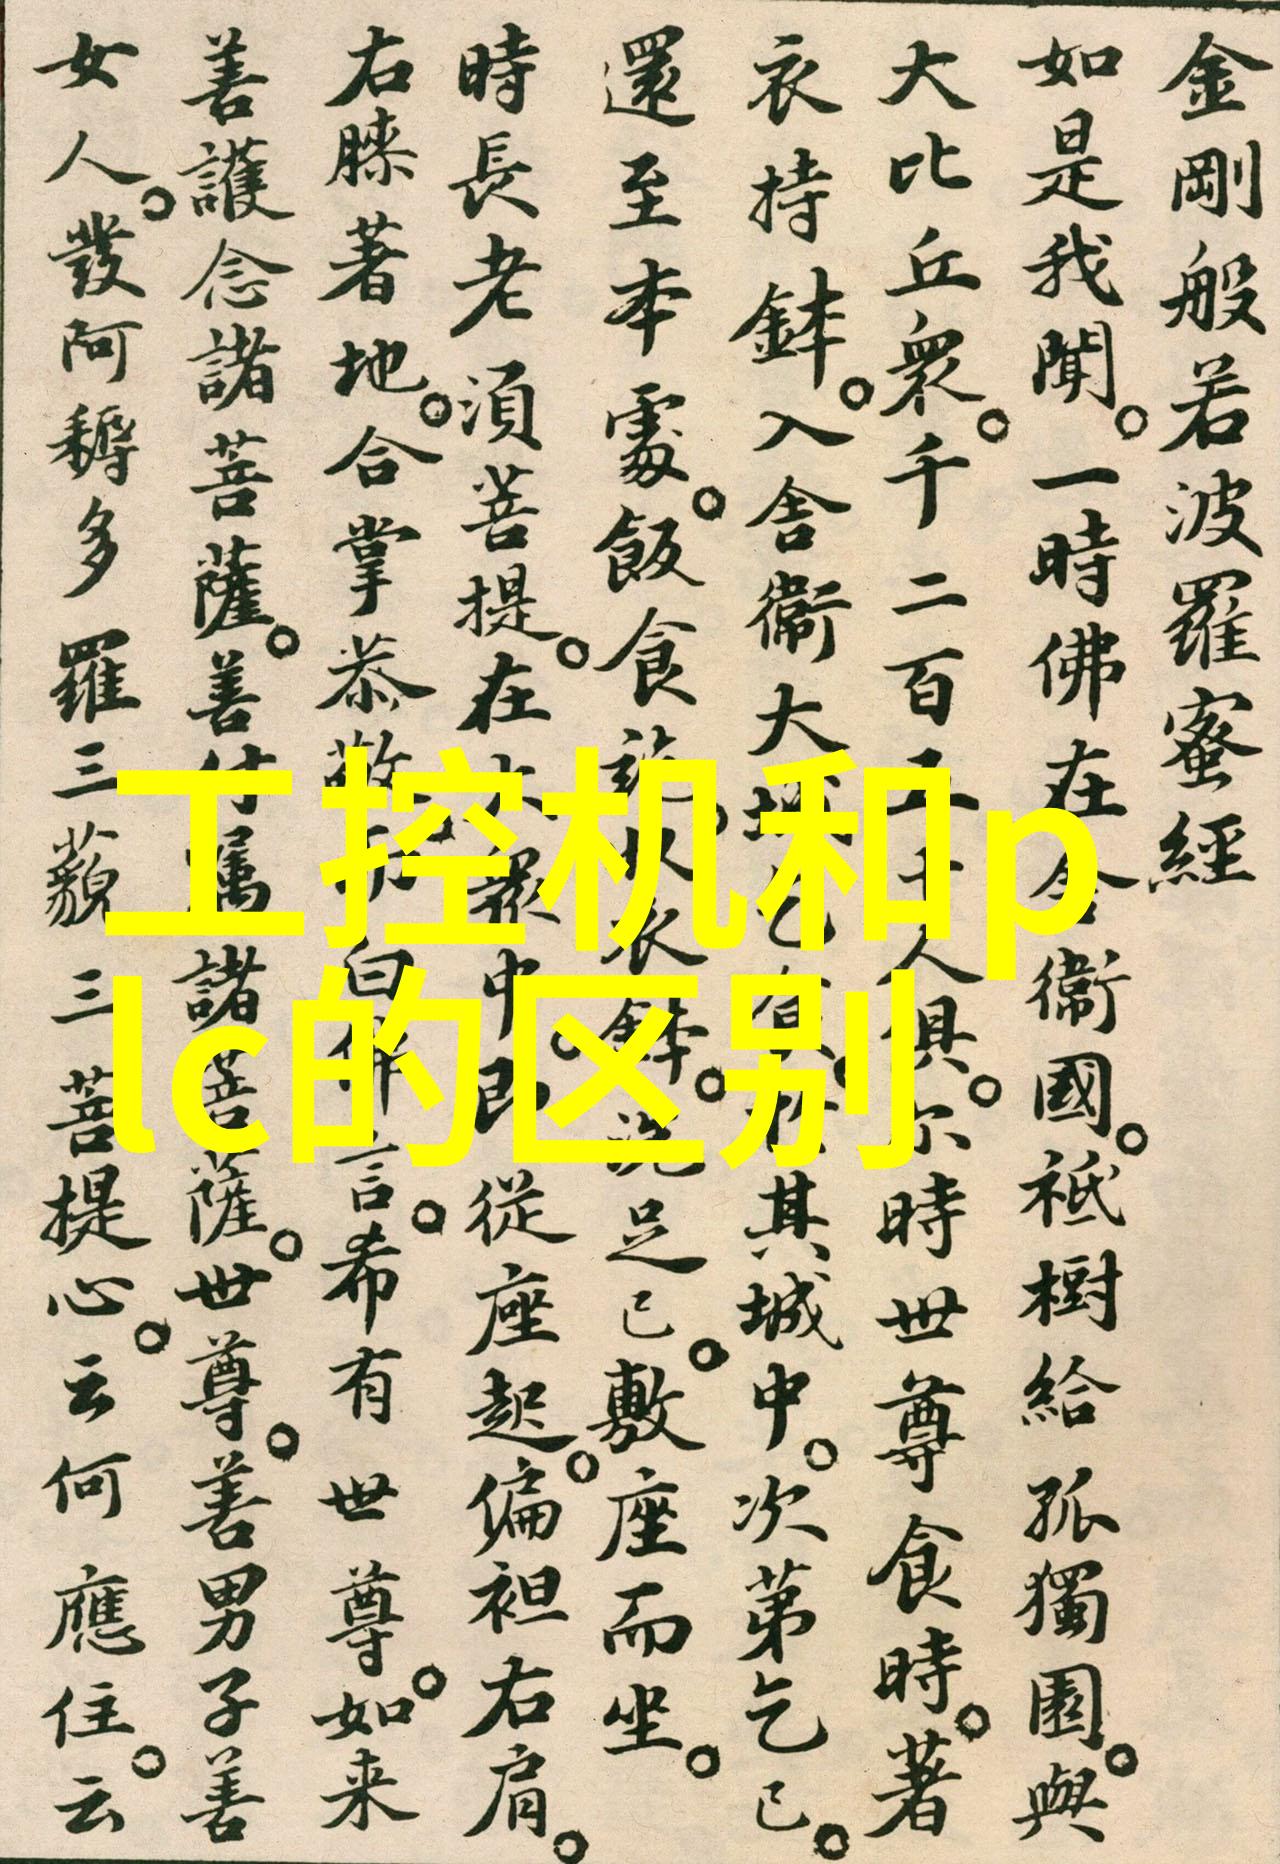 金剛般若波羅蜜經
如是我聞。一時佛在舍衞國。祇樹給孤獨園。與
大比丘衆。千二百五十人俱。尔時世尊食時。著
衣持鉢。入舍衞大城乞食。於其城中。次第乞已。
還至本處。飯食訖。收衣鉢。洗足已。敷座而坐。
時長老須菩提。在大衆中。即從座起。偏袒右肩。
右膝著地。合掌恭敬。而白佛言。希有世尊。如来
善護念諸菩薩。善付囑諸菩薩。世尊。善男子善
女人。發阿耨多羅三藐三菩提心。云何應住。云
工控机和p
lc的区别